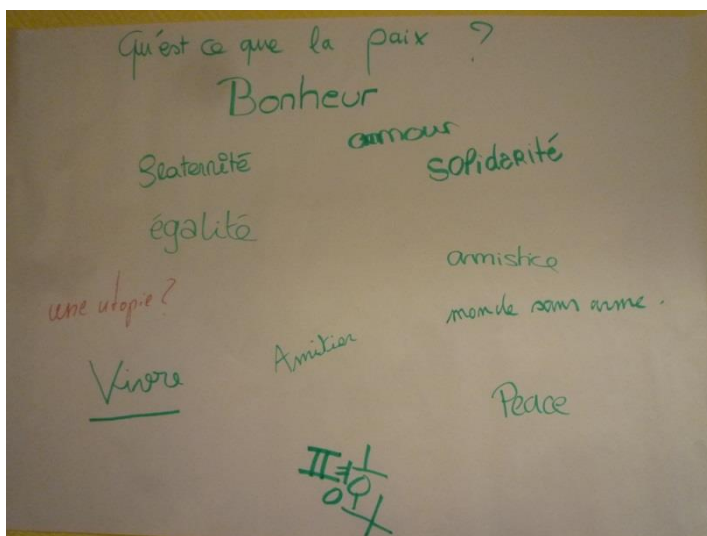 Qu'est ce que la paix ?
Bonheur
amour
fraternité
solidarité
égalité
armistice
une utopie ?
monde sans arme.
Amitier
Vivre
Peace